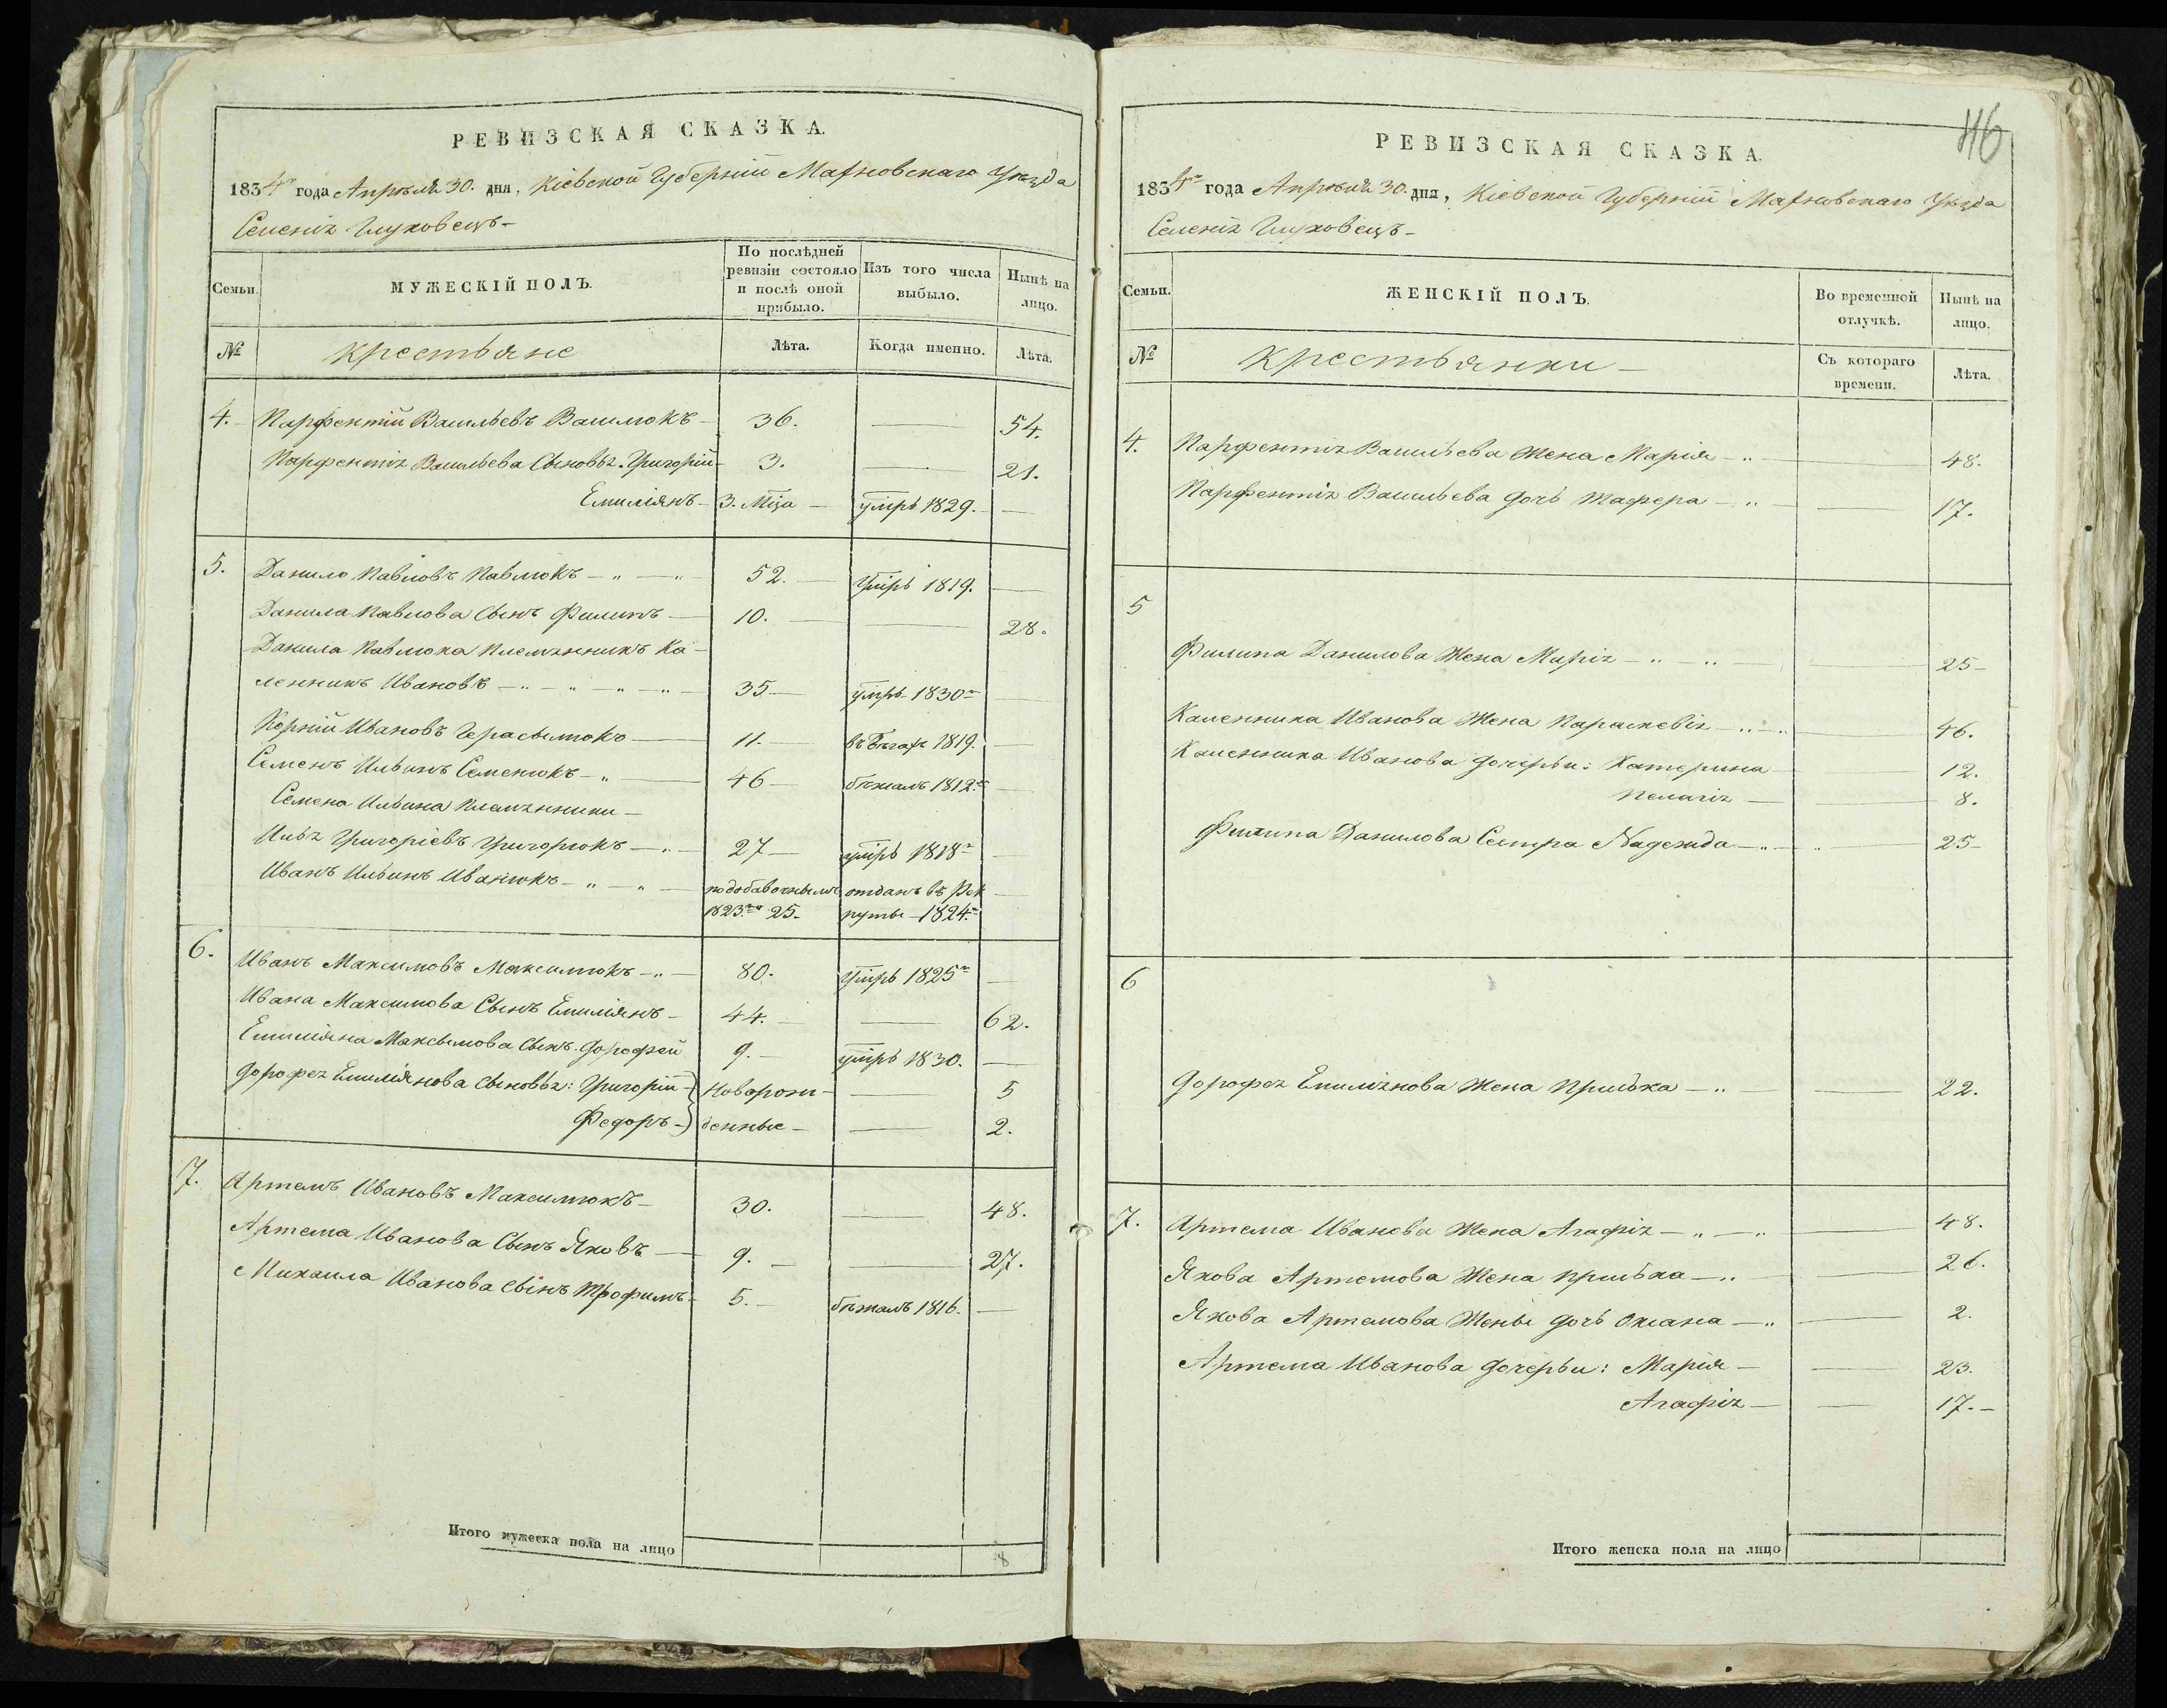 РЕВИЗСКАЯ СКАЗКА.
1834го года Апрѣля 30. дня, Кіевской Губерніи Махновскаго Уѣзда
Селенія Глуховецъ-
Семьи.
МУЖЕСКІЙ ПОЛЪ.
По послѣдней ревизіи состояло и послѣ оной прибыло.
Изъ того числа выбыло.
Нынѣ на лицо.
№
крестьяне
Лѣта.
Когда именно.
Лѣта.
4. Парфентій Васильевъ Василюкъ - 36. — 54.
Парфентія Васильева Сыновья. Григорій - 3. — 21.
Емиліянъ - 3. Мѣца — умръ 1829. —
5. Данило Павловъ Павлюкъ - 52. умръ 1819. —
Данила Павлова Сынъ Филипъ — 10. — 28.
Данила Павлюка Племянникъ Ка-
ленникъ Ивановъ — 35 — умръ 1830го —
Корній Ивановъ Герасымюкъ — 11. — въ бѣгахъ 1819. —
Семенъ Ильинъ Семенюкъ — 46 — бѣжалъ 1812го —
Семена Ильина племянники —
Илья Григоріевъ Григорюкъ — 27 — умръ 1818го —
Иванъ Ильинъ Иванюкъ — подобавочнымъ отданъ въ Рек —
1823го 25. руты - 1824го
6. Иванъ Максимовъ Максимюкъ — 80. умръ 1825го —
Ивана Максимова Сынъ Емиліянъ - 44. — 62.
Емиліяна Максымова Сынъ. Дорофей 9. — умръ 1830. —
Дорофея Емиліянова Сыновья: Григорій - Новорож- — 5
Федоръ - денные — 2.
7. Артемъ Ивановъ Максимюкъ - 30. — 48.
Артема Иванова Сынъ Яковъ — 9. — 27.
Михаила Иванова Сынъ Трофимъ - 5. — бѣжалъ 1816. —
Итого мужеска пола на лицо 8
116
РЕВИЗСКАЯ СКАЗКА.
1834го года Апрѣля 30. дня, Кіевской Губерніи Махновскаго Уѣзда
Селенія Глуховецъ-
Семьи.
ЖЕНСКІЙ ПОЛЪ.
Во временной отлучкѣ.
Нынѣ на лицо.
№
крестьянки —
Съ котораго времени.
Лѣта.
4. Парфентія Васильева Жена Марія — 48.
Парфентія Васильева дочь — 17.
5
Филипа Данилова Жена Марія — 25 -
Каленника Иванова Жена Параскевія — 46.
Каленника Иванова дочерьи: Катерина — 12.
Пелагія — 8.
Филипа Данилова Сестра Надежда — 25 -
6
Дорофея Емиліянова Жена Приська — 22.
7. Артема Иванова Жена Агафія — 48.
Якова Артемова Жена Приська — 26.
Якова Артемова Жены дочь Оксана — 2.
Артема Иванова дочерьи: Марія — 23.
Агафія — 17. -
Итого женска пола на лицо